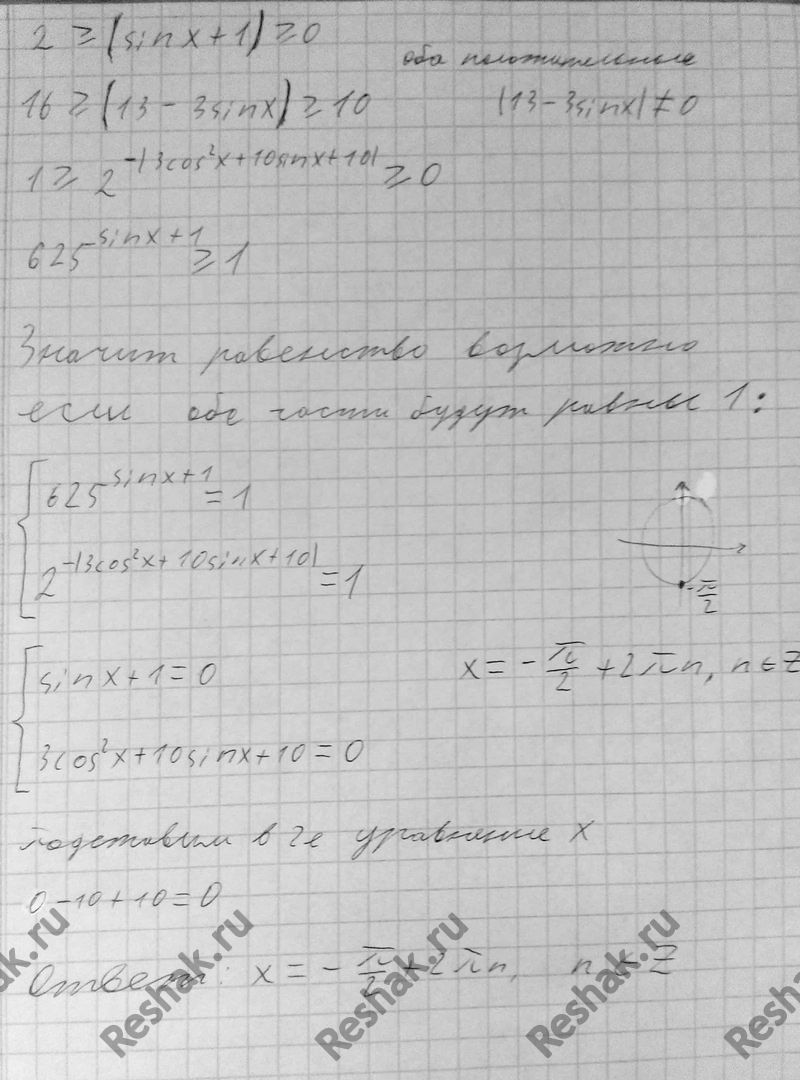 2 ≥ (sinx+1) ≥ 0
оба положительные
16 ≥ (13 - 3sinx) ≥ 10
|13-3sinx| ≠ 0
1 ≥ 2^-|3cos²x+10sinx+10| ≥ 0
625^sinx+1 ≥ 1
Значит равенство возможно
если обе части будут равны 1:
625^sinx+1 = 1
2^-|3cos²x+10sinx+10| = 1
-π/2
sinx+1=0
x = -π/2 + 2πn, n∈Z
3cos²x+10sinx+10=0
Подставим в 2е уравнение x
0-10+10=0
Ответ: x = -π/2 + 2πn, n∈Z
Reshak.ru
Reshak.ru
Reshak.ru
Reshak.ru
Reshak.ru